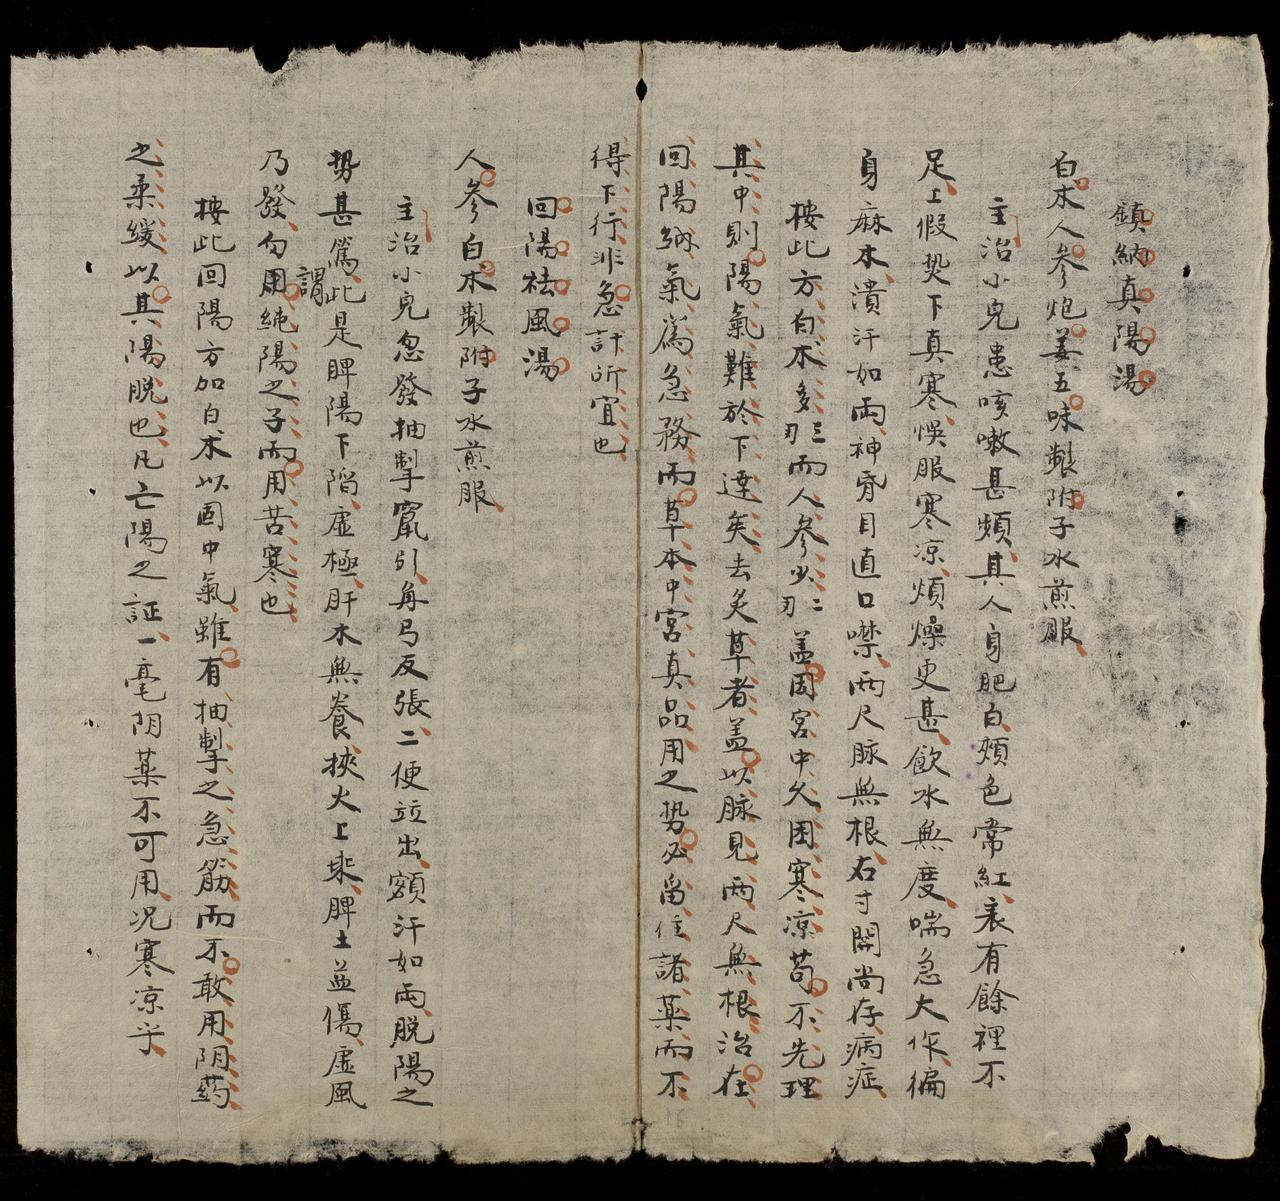 鎮納真陽湯
白朮人參炮姜五味製附子水煎服
主治小兒患咳嗽甚頻其人身肥白頰色常紅表有餘裡不
足上假热下真寒悞服寒凉煩燥更甚飲水無度喘急大作徧
身麻木潰汗如雨神昏目直口噤两尺脉無根右寸関尚存病症
按此方白朮多三刃而人參少二刃盖因宮中久困寒凉苟不先理
其中則陽氣難於下達矣去炙草者盖以脉見两尺無根治在
回陽納氣為急務而草本中宮真品用之势必留住諸薬而不
得下行非急計所宜也
回陽祛風湯
人參白朮製附子水煎服
主治小兒忽發抽掣竄引角弓反張二便竝出額汗如雨脱陽之
势甚篤此是脾陽下陷虚極肝木無養挾火上乘脾土並傷虚風
乃發勿謂用純陽之子而用苦寒也
按此回陽方加白朮以固中氣雖有抽掣之急筋而不敢用阴药
之柔緩以其陽脱也凡亡陽之証一毫阴薬不可用况寒凉乎